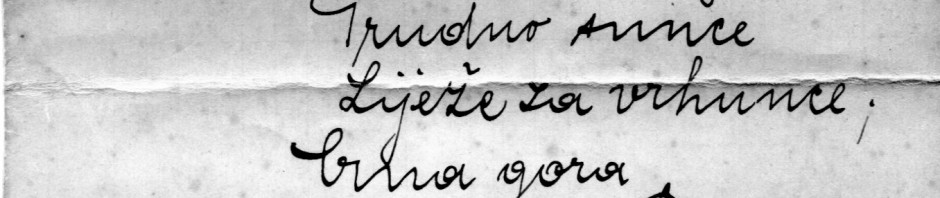 Trudno sunce
Liježe za vrhunce;
Crna gora